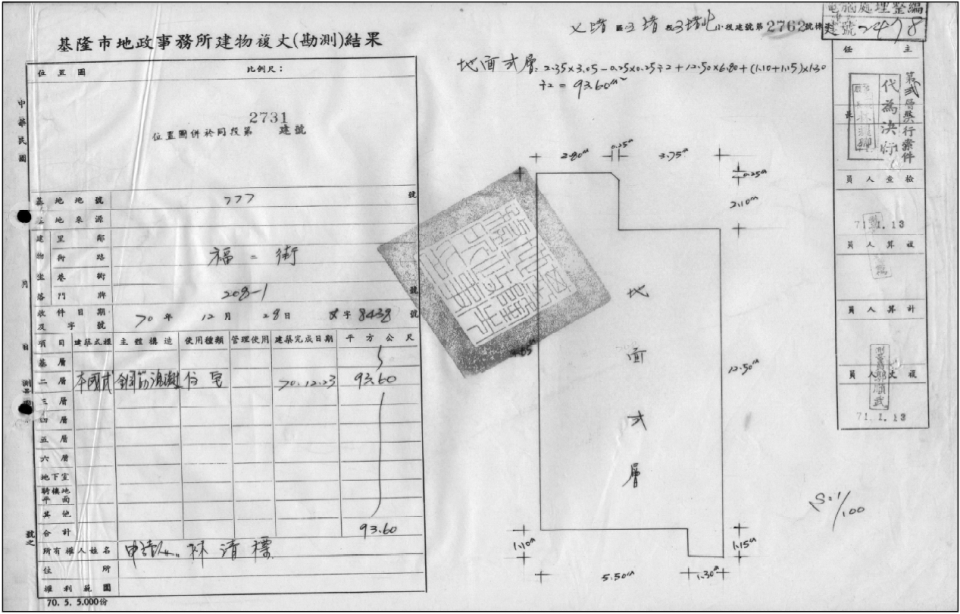 電腦處理整編
建號2478
七堵區五堵段五堵北小段建號第2762號
基隆市地政事務所建物複丈(勘測)結果
地面式層: 2.35×3.05-0.25×0.25÷2+12.50×6.80+(1.10+1.15)×1.30
÷2=93.60m²
位置圖 比例尺:
2731
位置圖併於同段第 建號
中華民國
基地地號 777 號
土地來源
建物坐落
里鄰
街路 福二街
巷衖
門牌 208-1 號
收件日期及字號 70年12月28日 字8438號
項目 建築式樣 主體構造 使用種類 管理使用 建築完成日期 平方公尺
基層
二層 本國式 鋼筋混凝 住宅 70.12.23 93.60
三層
四層
五層
六層
地下室
騎樓地平面
其他
合計 93.60
所有權人姓名 申請人 林清標
住所
權利範圍
70.5.5,000份
主任
代為決行
第貳層決行案件
檢查人員
71.1.13
複算人員
計算人員
複丈人員
71.1.13
2.80m 0.25m 3.75m
0.25m
2.10m
地面式層
12.50m
1.10m 1.15m
5.50m 1.30m
S:1/100